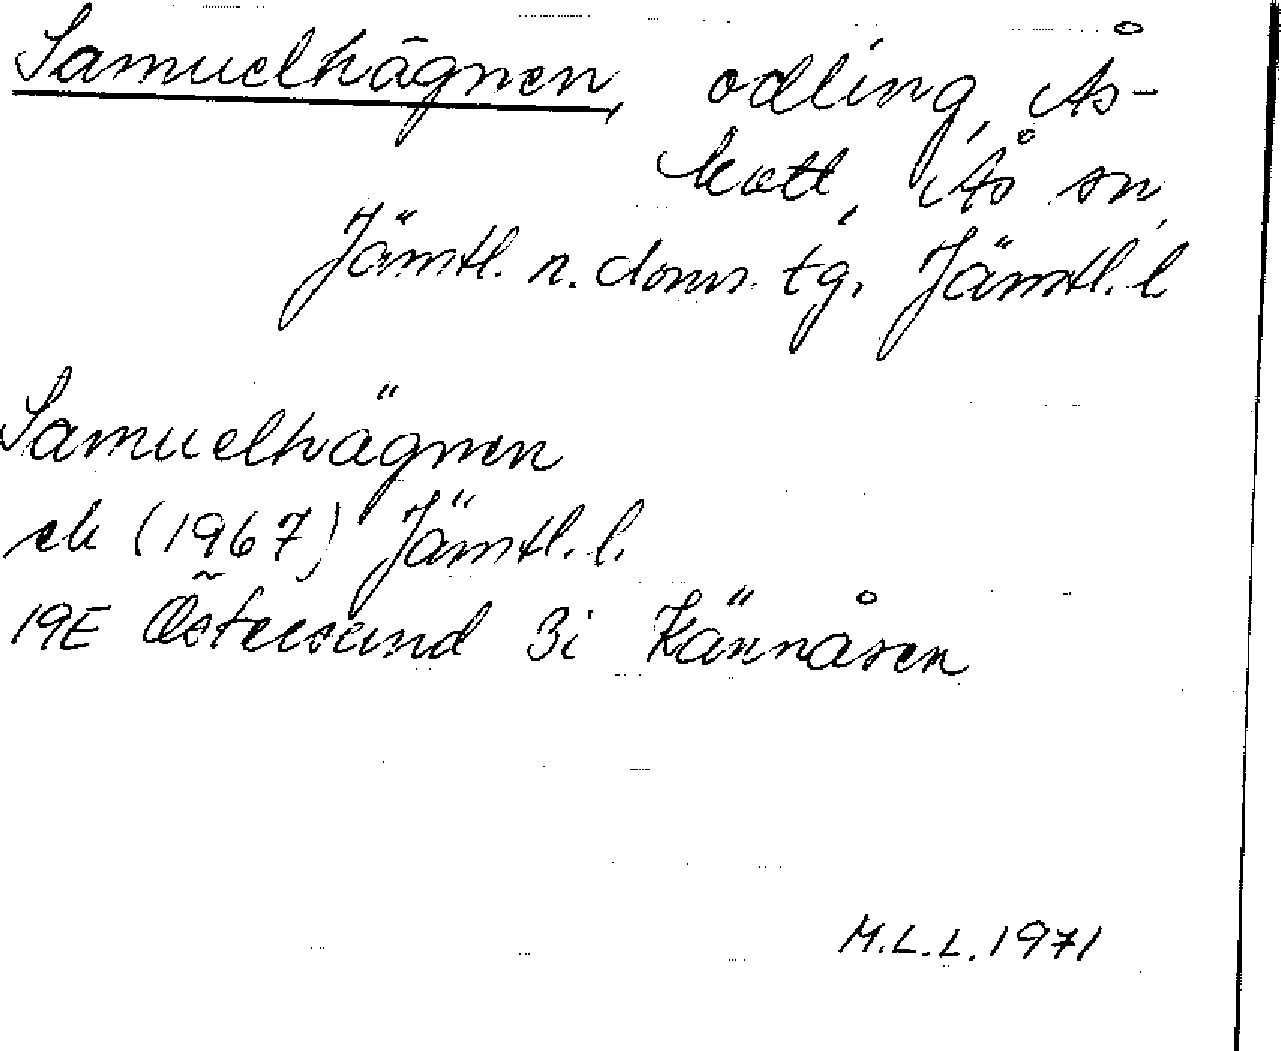 Samuelhägnen, odling, Ås-
kott, Ås sn,
Jämtl. n. doms. tg. Jämtl. l
Samuelhägnen
ek (1967) Jämtl. l.
19E Östersund 3i Kännåsen
M.L.L. 1971